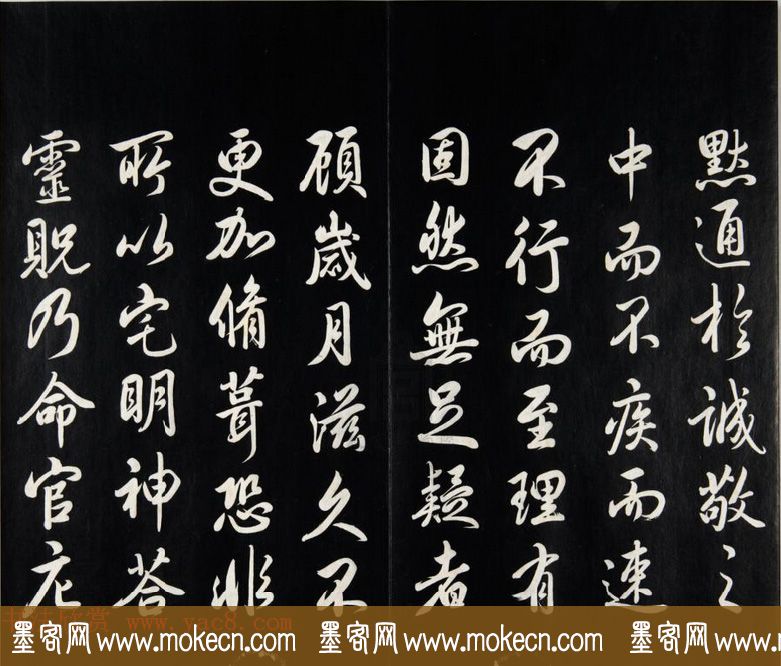 黙通於誠敬之
中而不疾而速
不行而至理有
固然無足疑者
顧歲月滋久不
更加脩葺恐非
所以宅明神荅
靈貺乃命官庀
書法欣賞 www.yac8.com
墨客网 www.mokecn.com 墨客网 www.mokecn.com 墨客网 www.mokecn.